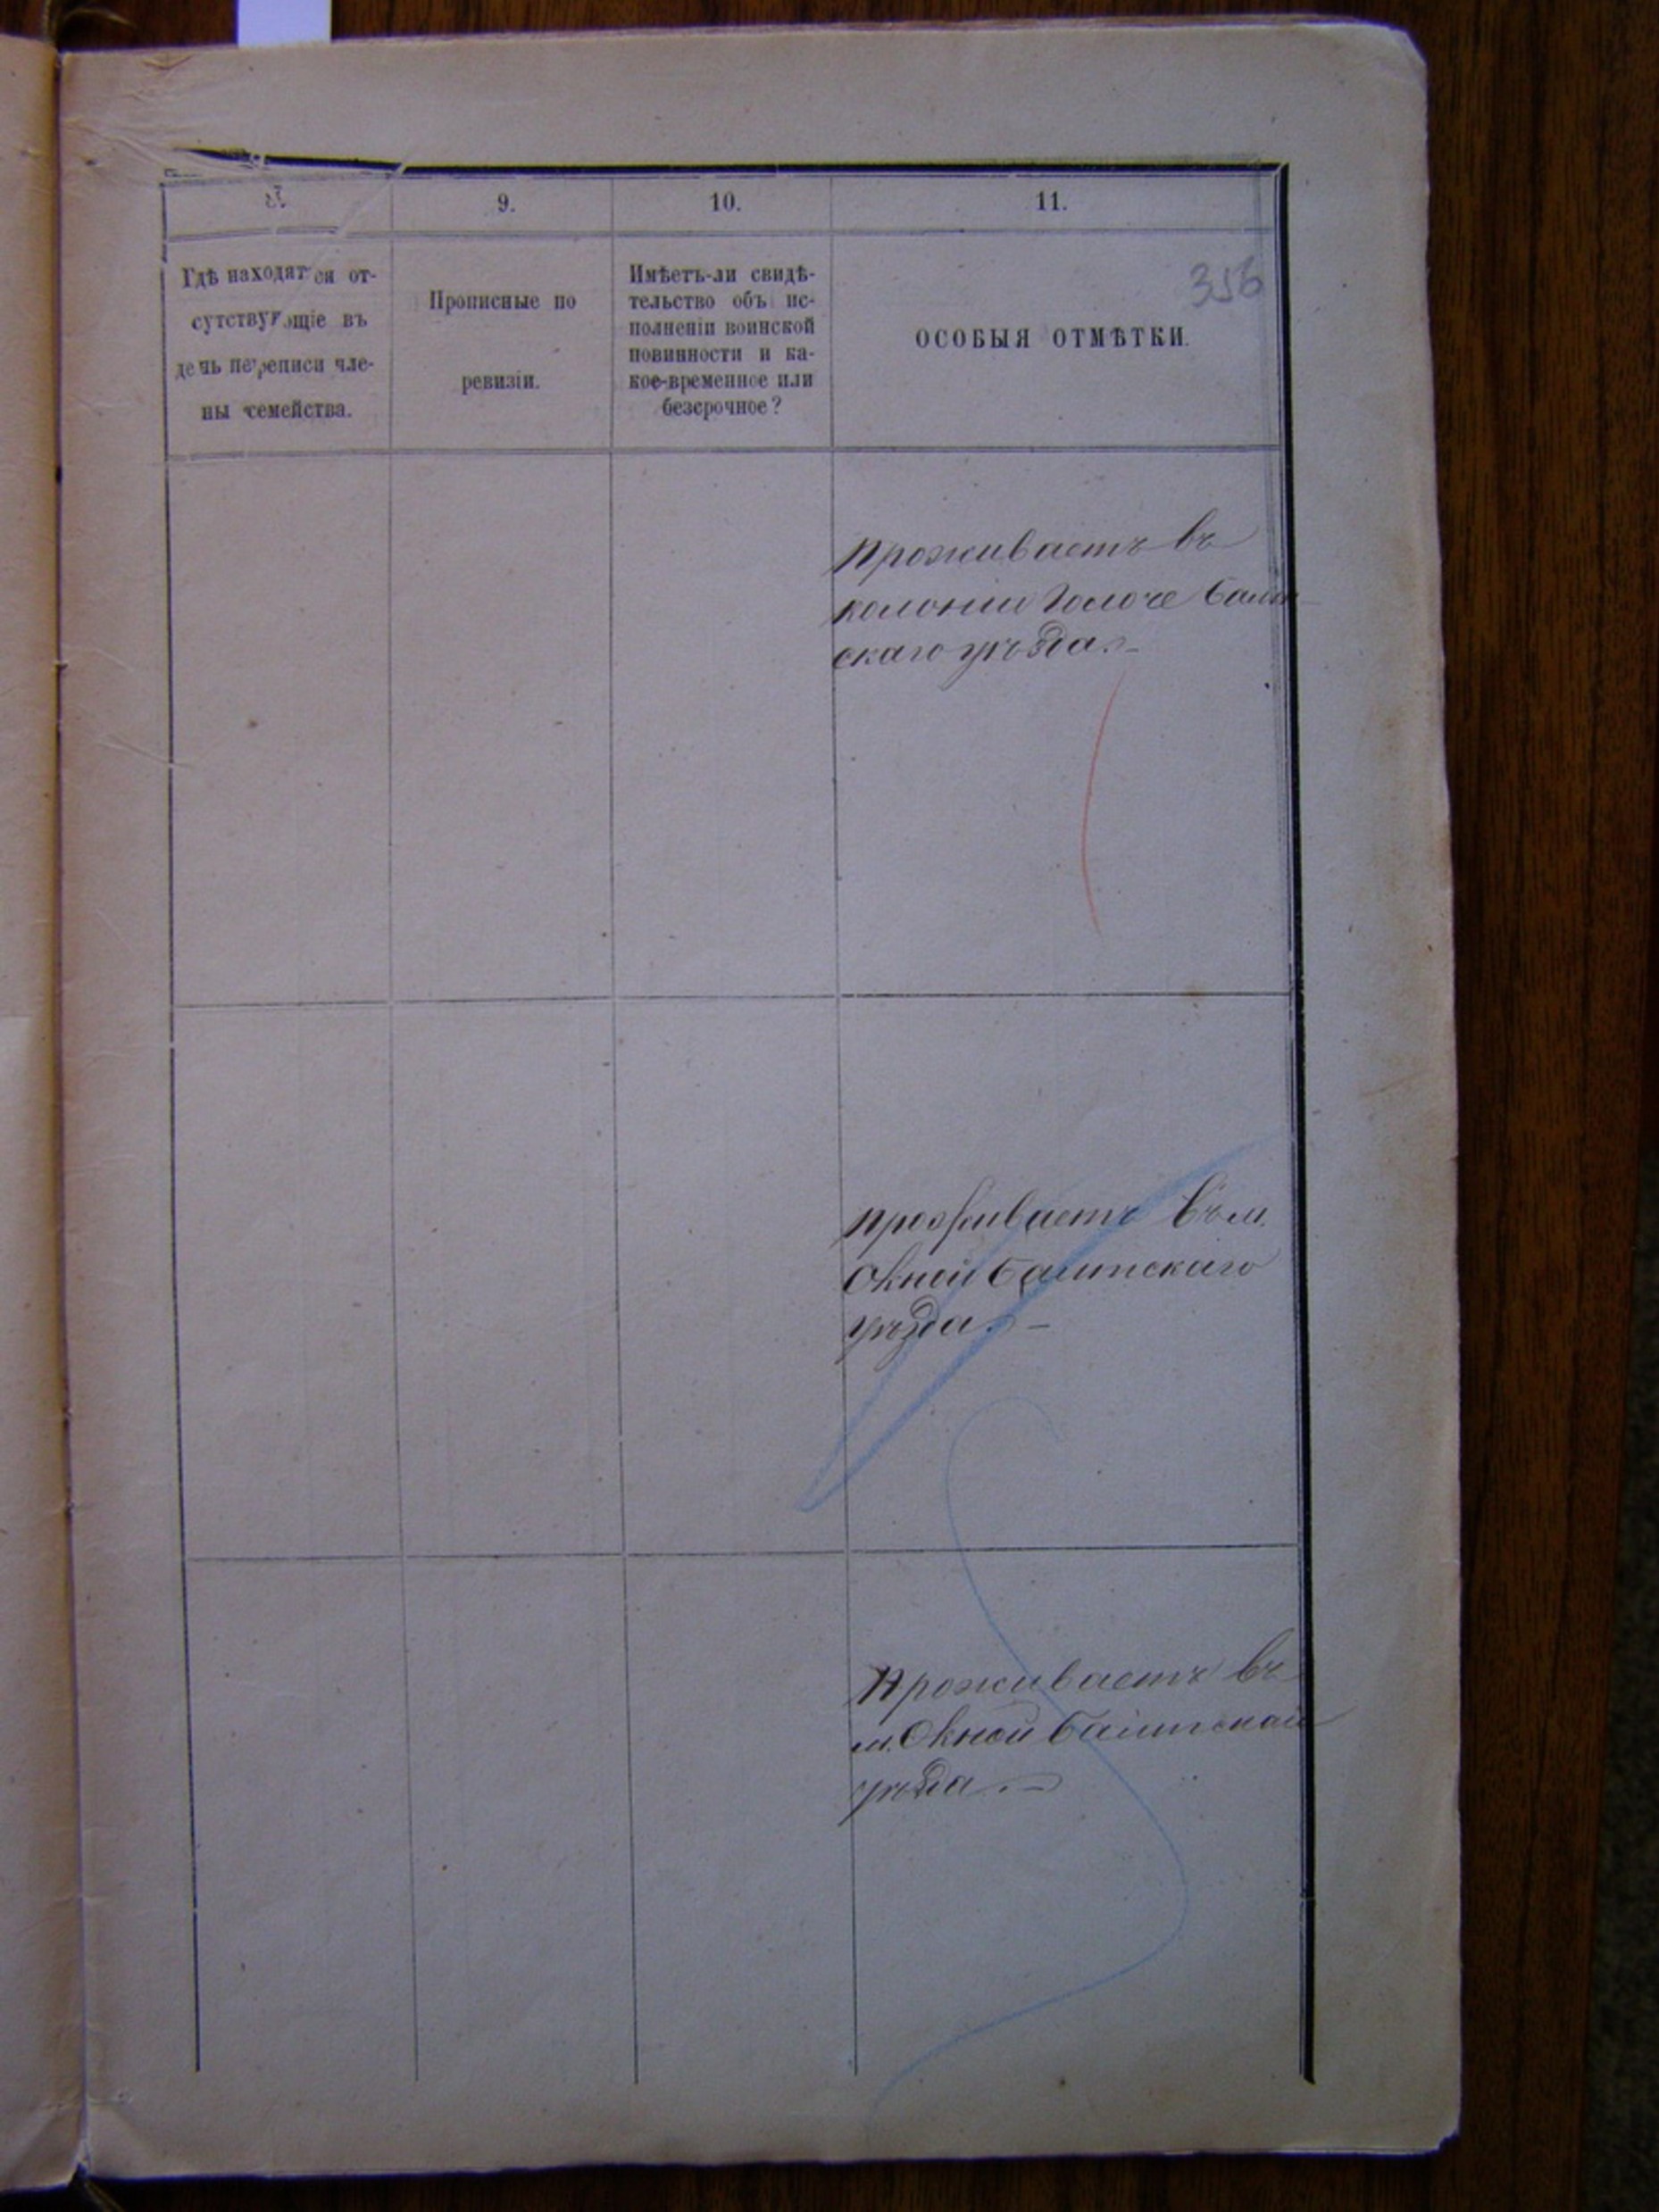 9.
10.
11.
356
Гдѣ находятся от-
сутствующіе въ
день переписи чле-
ны семейства.
Прописные по
ревизіи.
Имѣетъ-ли свидѣ-
тельство объ ис-
полненіи воинской
повинности и ка-
кое-временное или
безсрочное?
ОСОБЫЯ ОТМѢТКИ.
Проживаетъ въ
колоніи Голоче Балт-
скаго уѣзда. –
проживаетъ въ м.
Окной Балтскаго
уѣзда. –
Проживаетъ въ
м. Окной Балтскаго
уѣзда. –